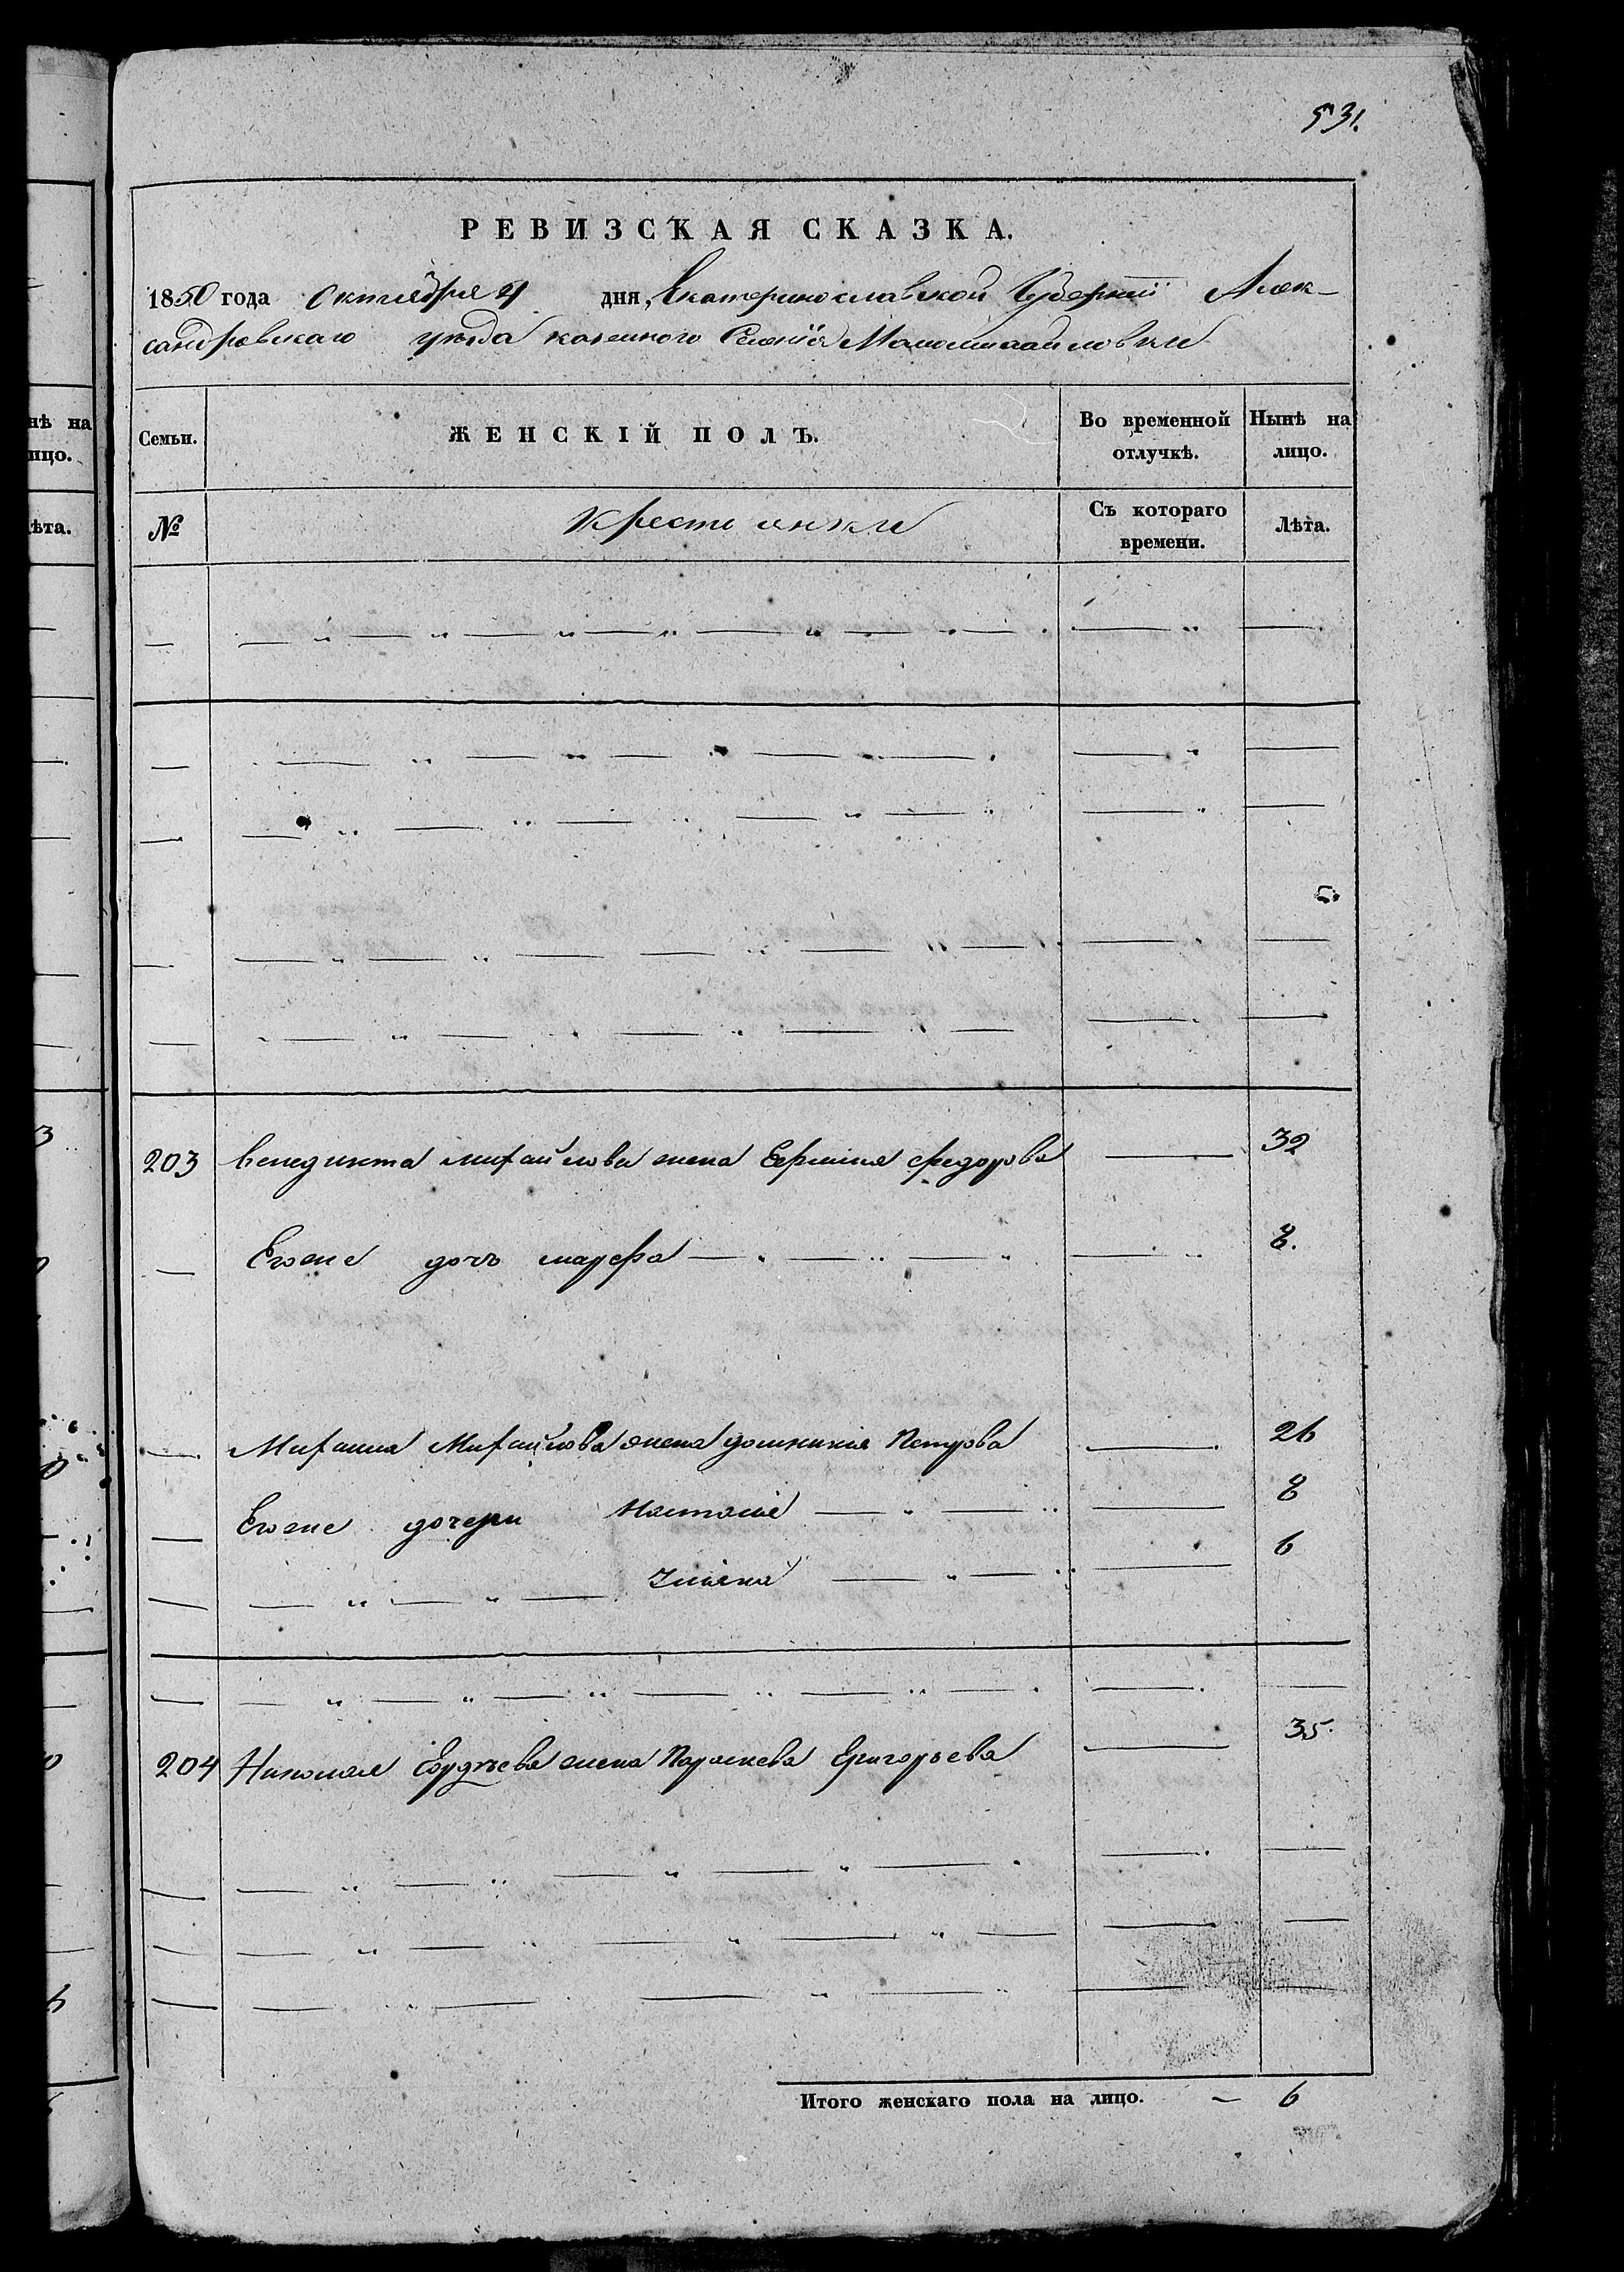 531.
РЕВИЗСКАЯ СКАЗКА.
1850 года Октября 4 дня, Екатеринославской Губернии Алек-
сандровскаго уѣзда казеннаго Селенія Маломихайловки
Семьи. ЖЕНСКІЙ ПОЛЪ. Во временной отлучкѣ. Нынѣ на лицо.
№ Крестьянки Съ котораго времени. Лѣта.
203 Венедикта Михайлова жена Ефимия Федорова 32
Егоже дочь Марфа 8.
Михаила Михайлова жена Домникия Петрова 26
Егоже дочери Настасия 8
Улияна 6
204 Николая Гордѣева жена Параскева Григорьева 35.
Итого женскаго пола на лицо. — 6
нѣ на
ицо.
ѣта.